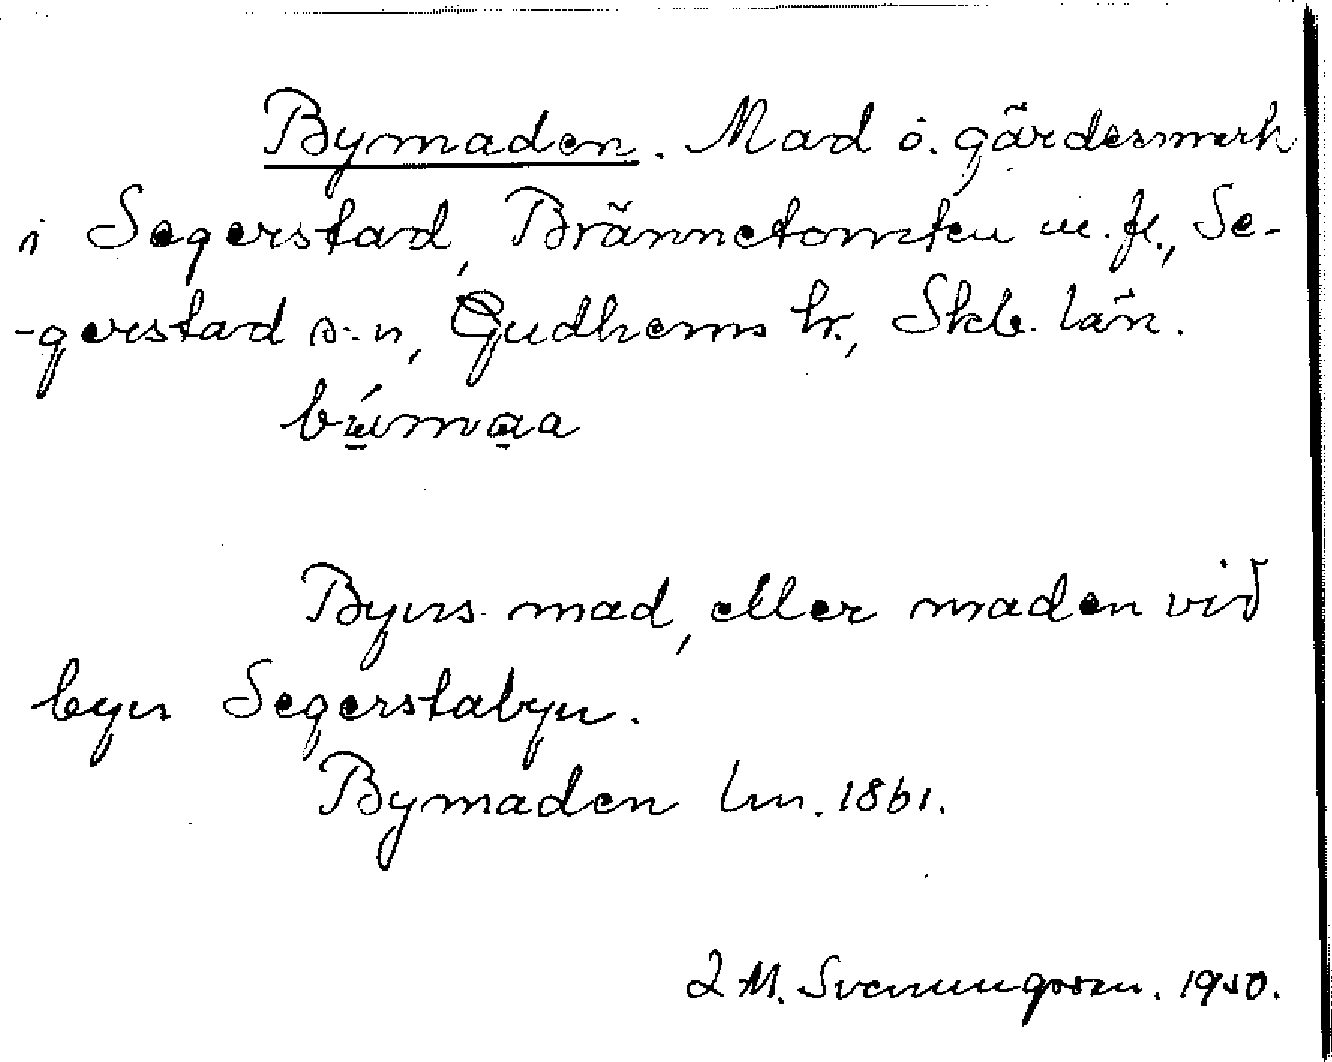 Bymaden. Mad o. gärdesmark
i Segerstad, Brännetomten m. fl., Se-
-gerstad s:n, Gudhems hr., Skb. län.
býmaa
Byns mad, eller maden vid
byn Segerstabyn.
Bymaden lm. 1861.
M. Svenungsson. 1950.